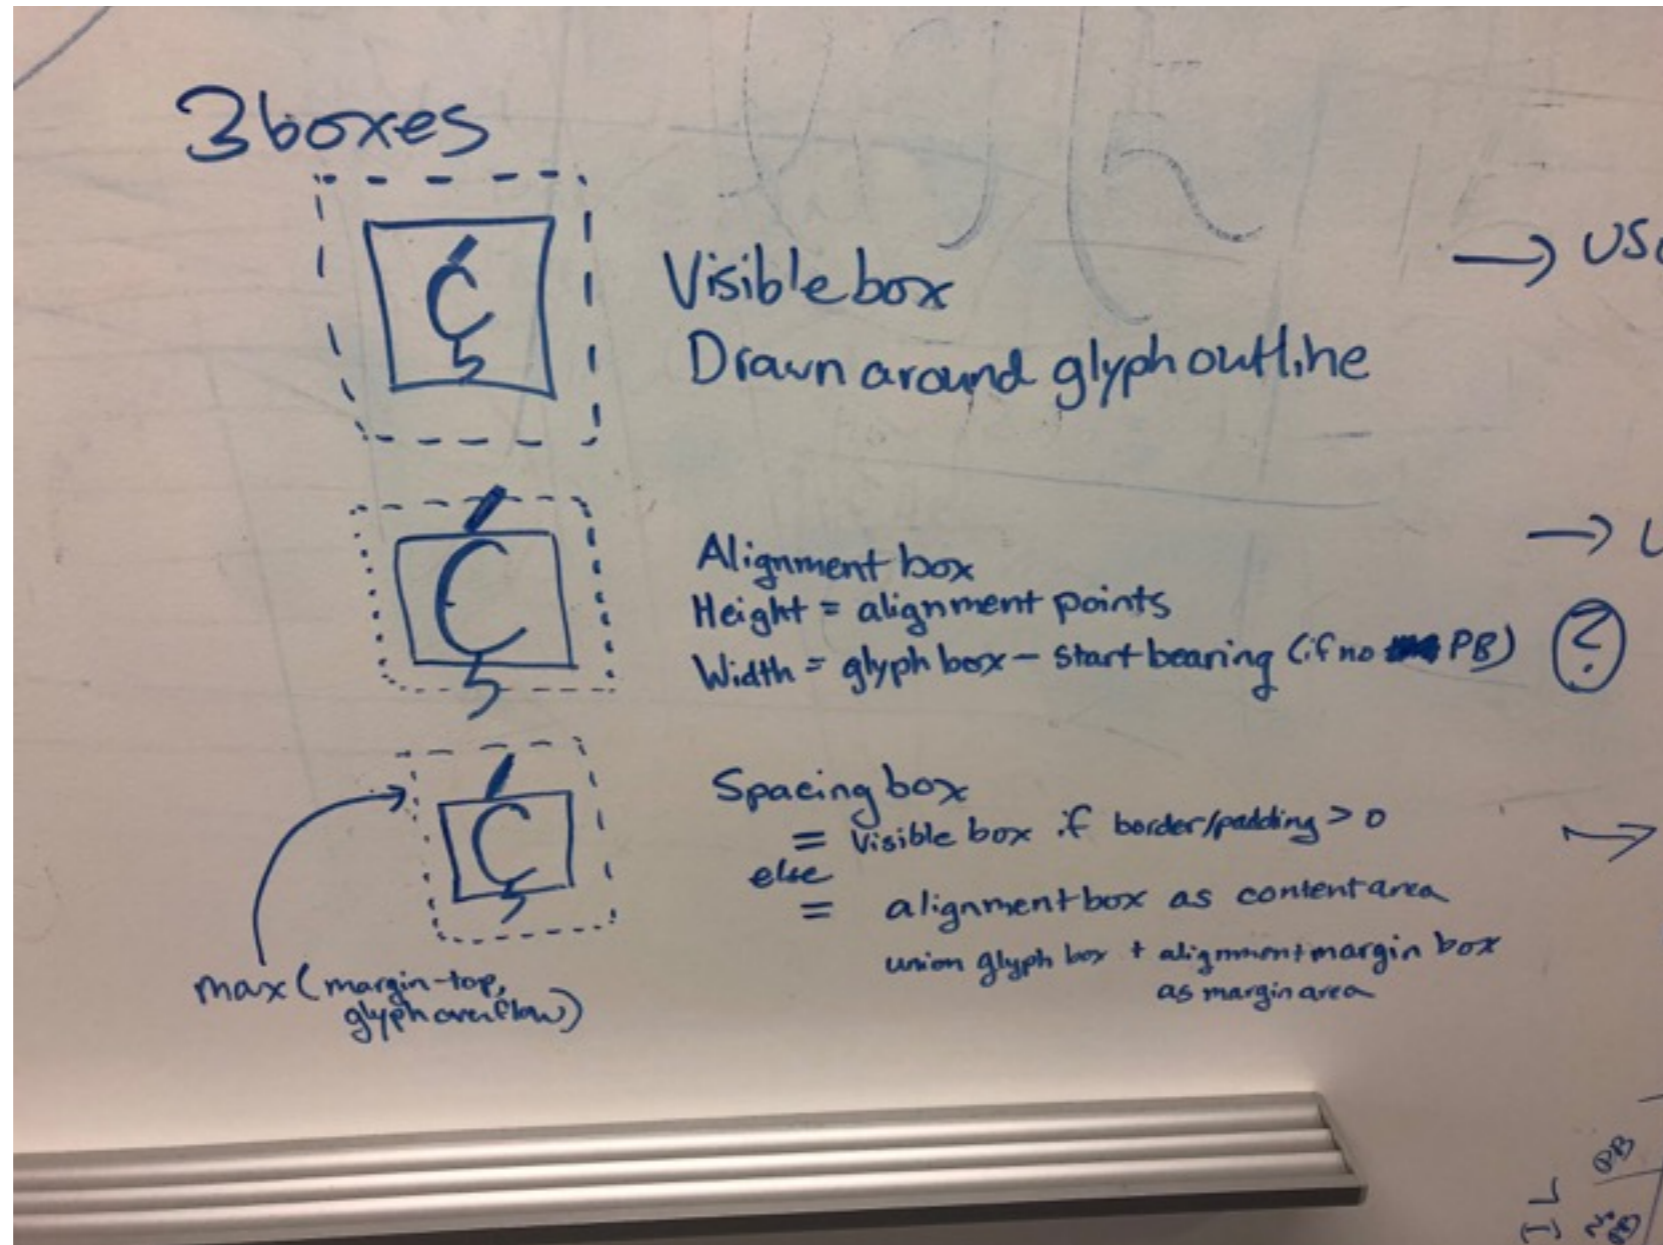 3 boxes
Visible box
Drawn around glyph outline
Alignment box
Height = alignment points
Width = glyph box - start bearing (if no PB) ?
Spacing box
= Visible box if border/padding > 0
else
= alignment box as content area
union glyph box + alignment margin box
as margin area
max (margin-top,
glyph overflow)
PB
PB